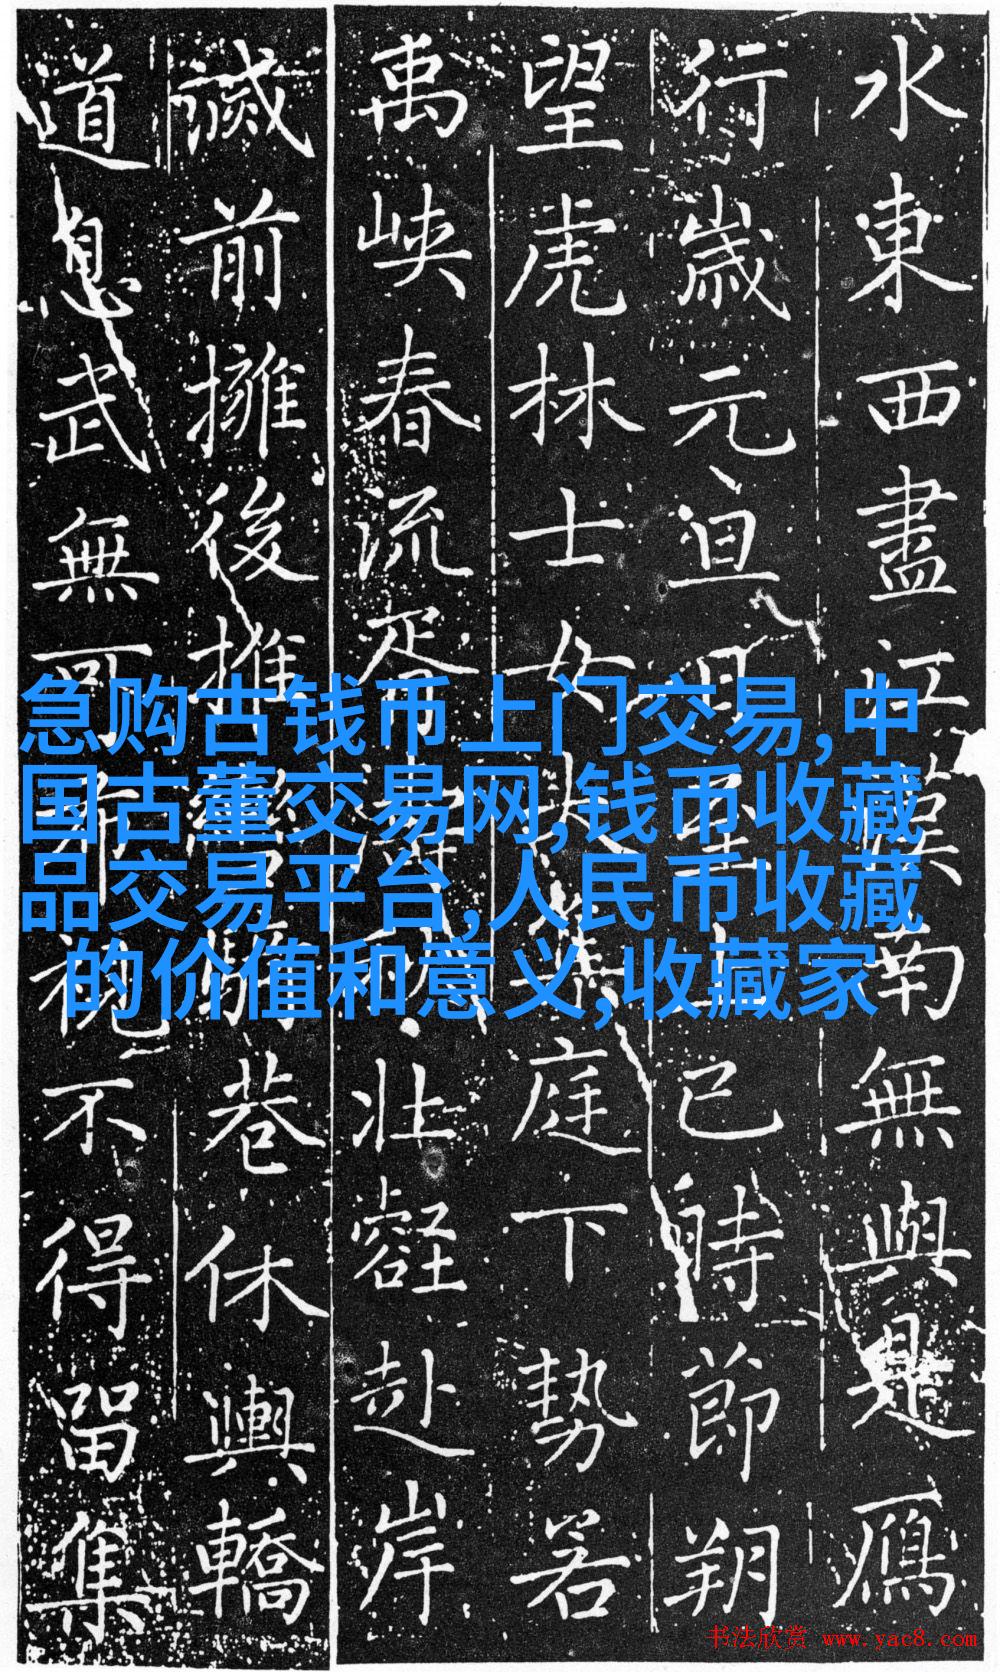 水東西盡江漢南無與是鴈
行歲元旦至已時節朔
望虎林士女大集庭下勢若
禹峽春流胥濤壯赴岸
滅前擁後推駢巷休輿轎
道息武無可那移不得留集
急购古钱币上门交易,中
国古董交易网,钱币收藏
品交易平台,人民币收藏
的价值和意义,收藏家
书法欣赏 www.yac8.com